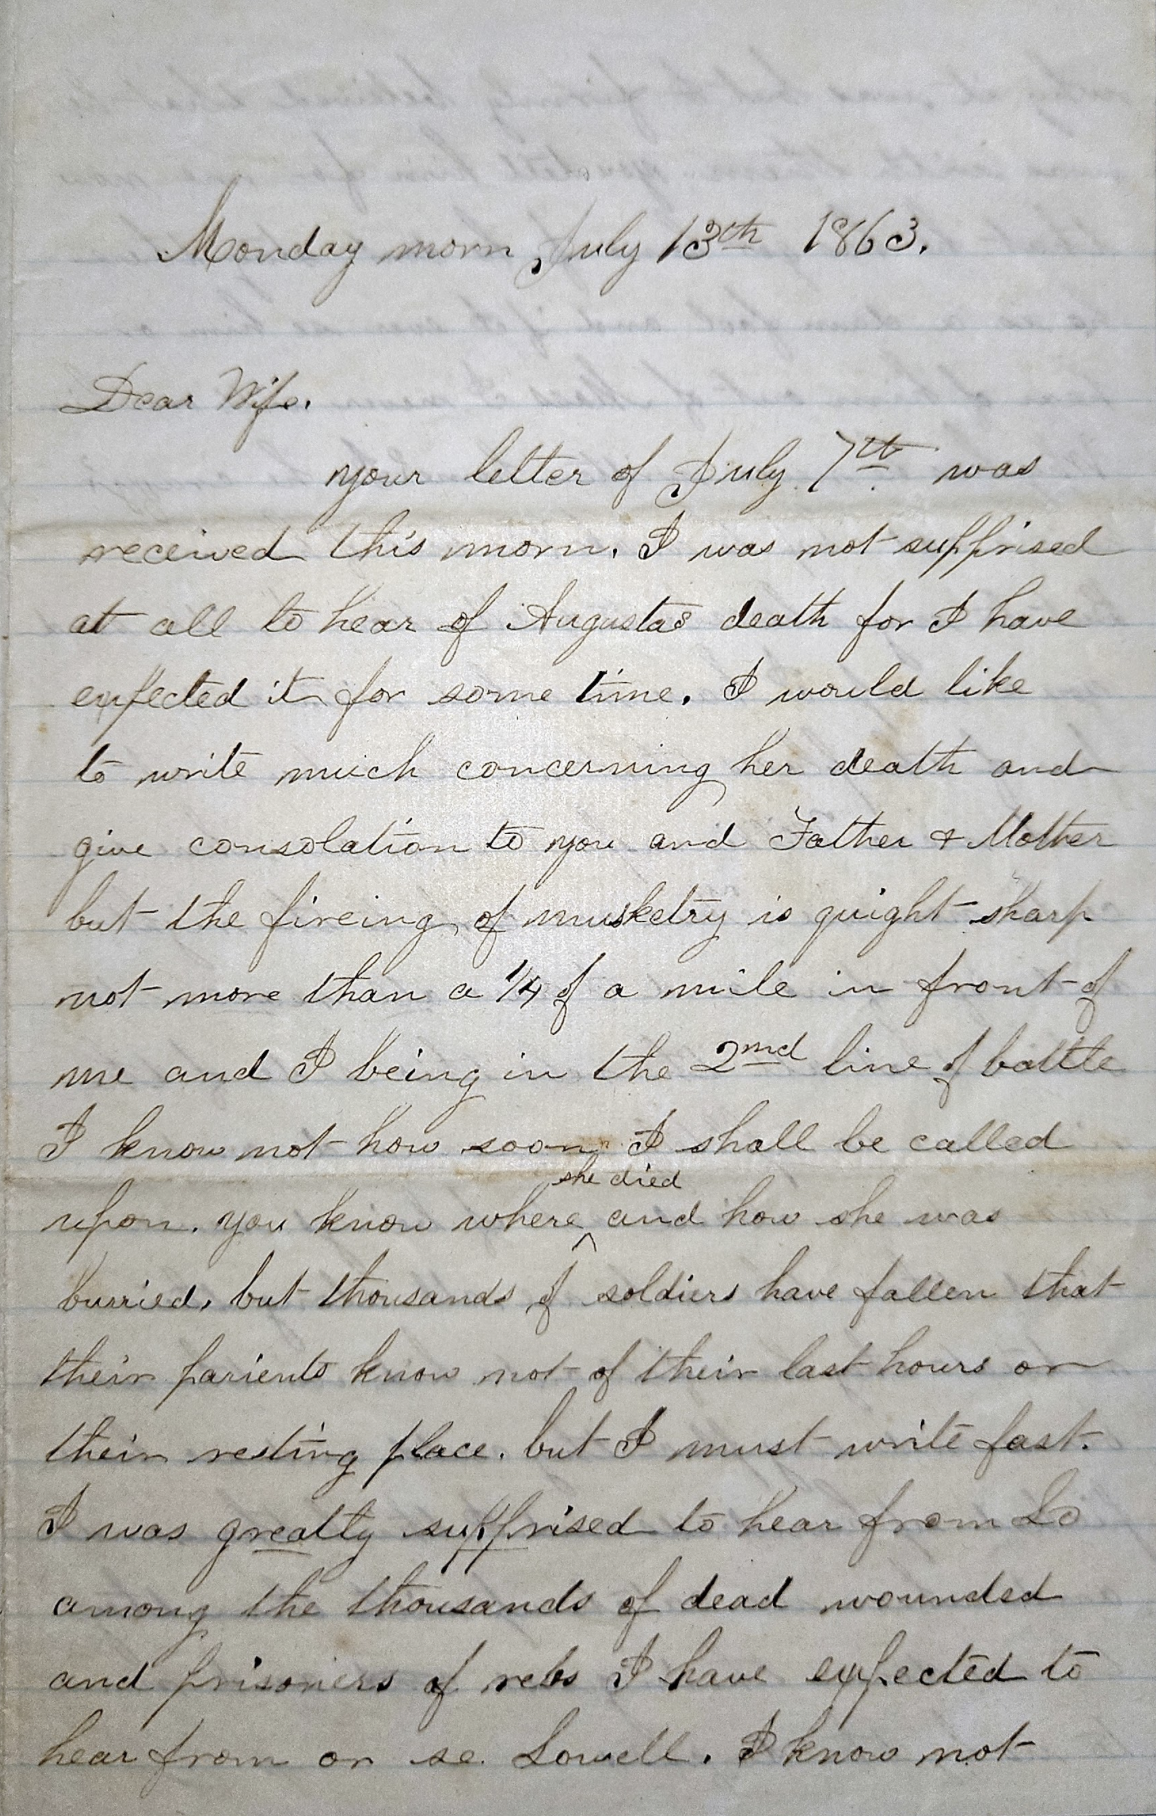 Monday morn July 13th 1863.
Dear Wife.
your letter of July 7th was
received this morn. I was not supprised
at all to hear of Augustas death for I have
expected it for some time. I would like
to write much concerning her death and
give consolation to you and Father & Mother
but the fireing of musketry is quight sharp
not more than a 1/4 of a mile in front of
me and I being in the 2nd line of battle
I know not how soon I shall be called
she died
upon. you know where ^ and how she was
burried, but thousands of soldiers have fallen that
their parients know not of their last hours or
their resting place. but I must write fast.
I was greatly supprised to hear from Lo
among the thousands of dead wounded
and prisoniers of rebs I have expected to
hear from or se Lowell. I know not